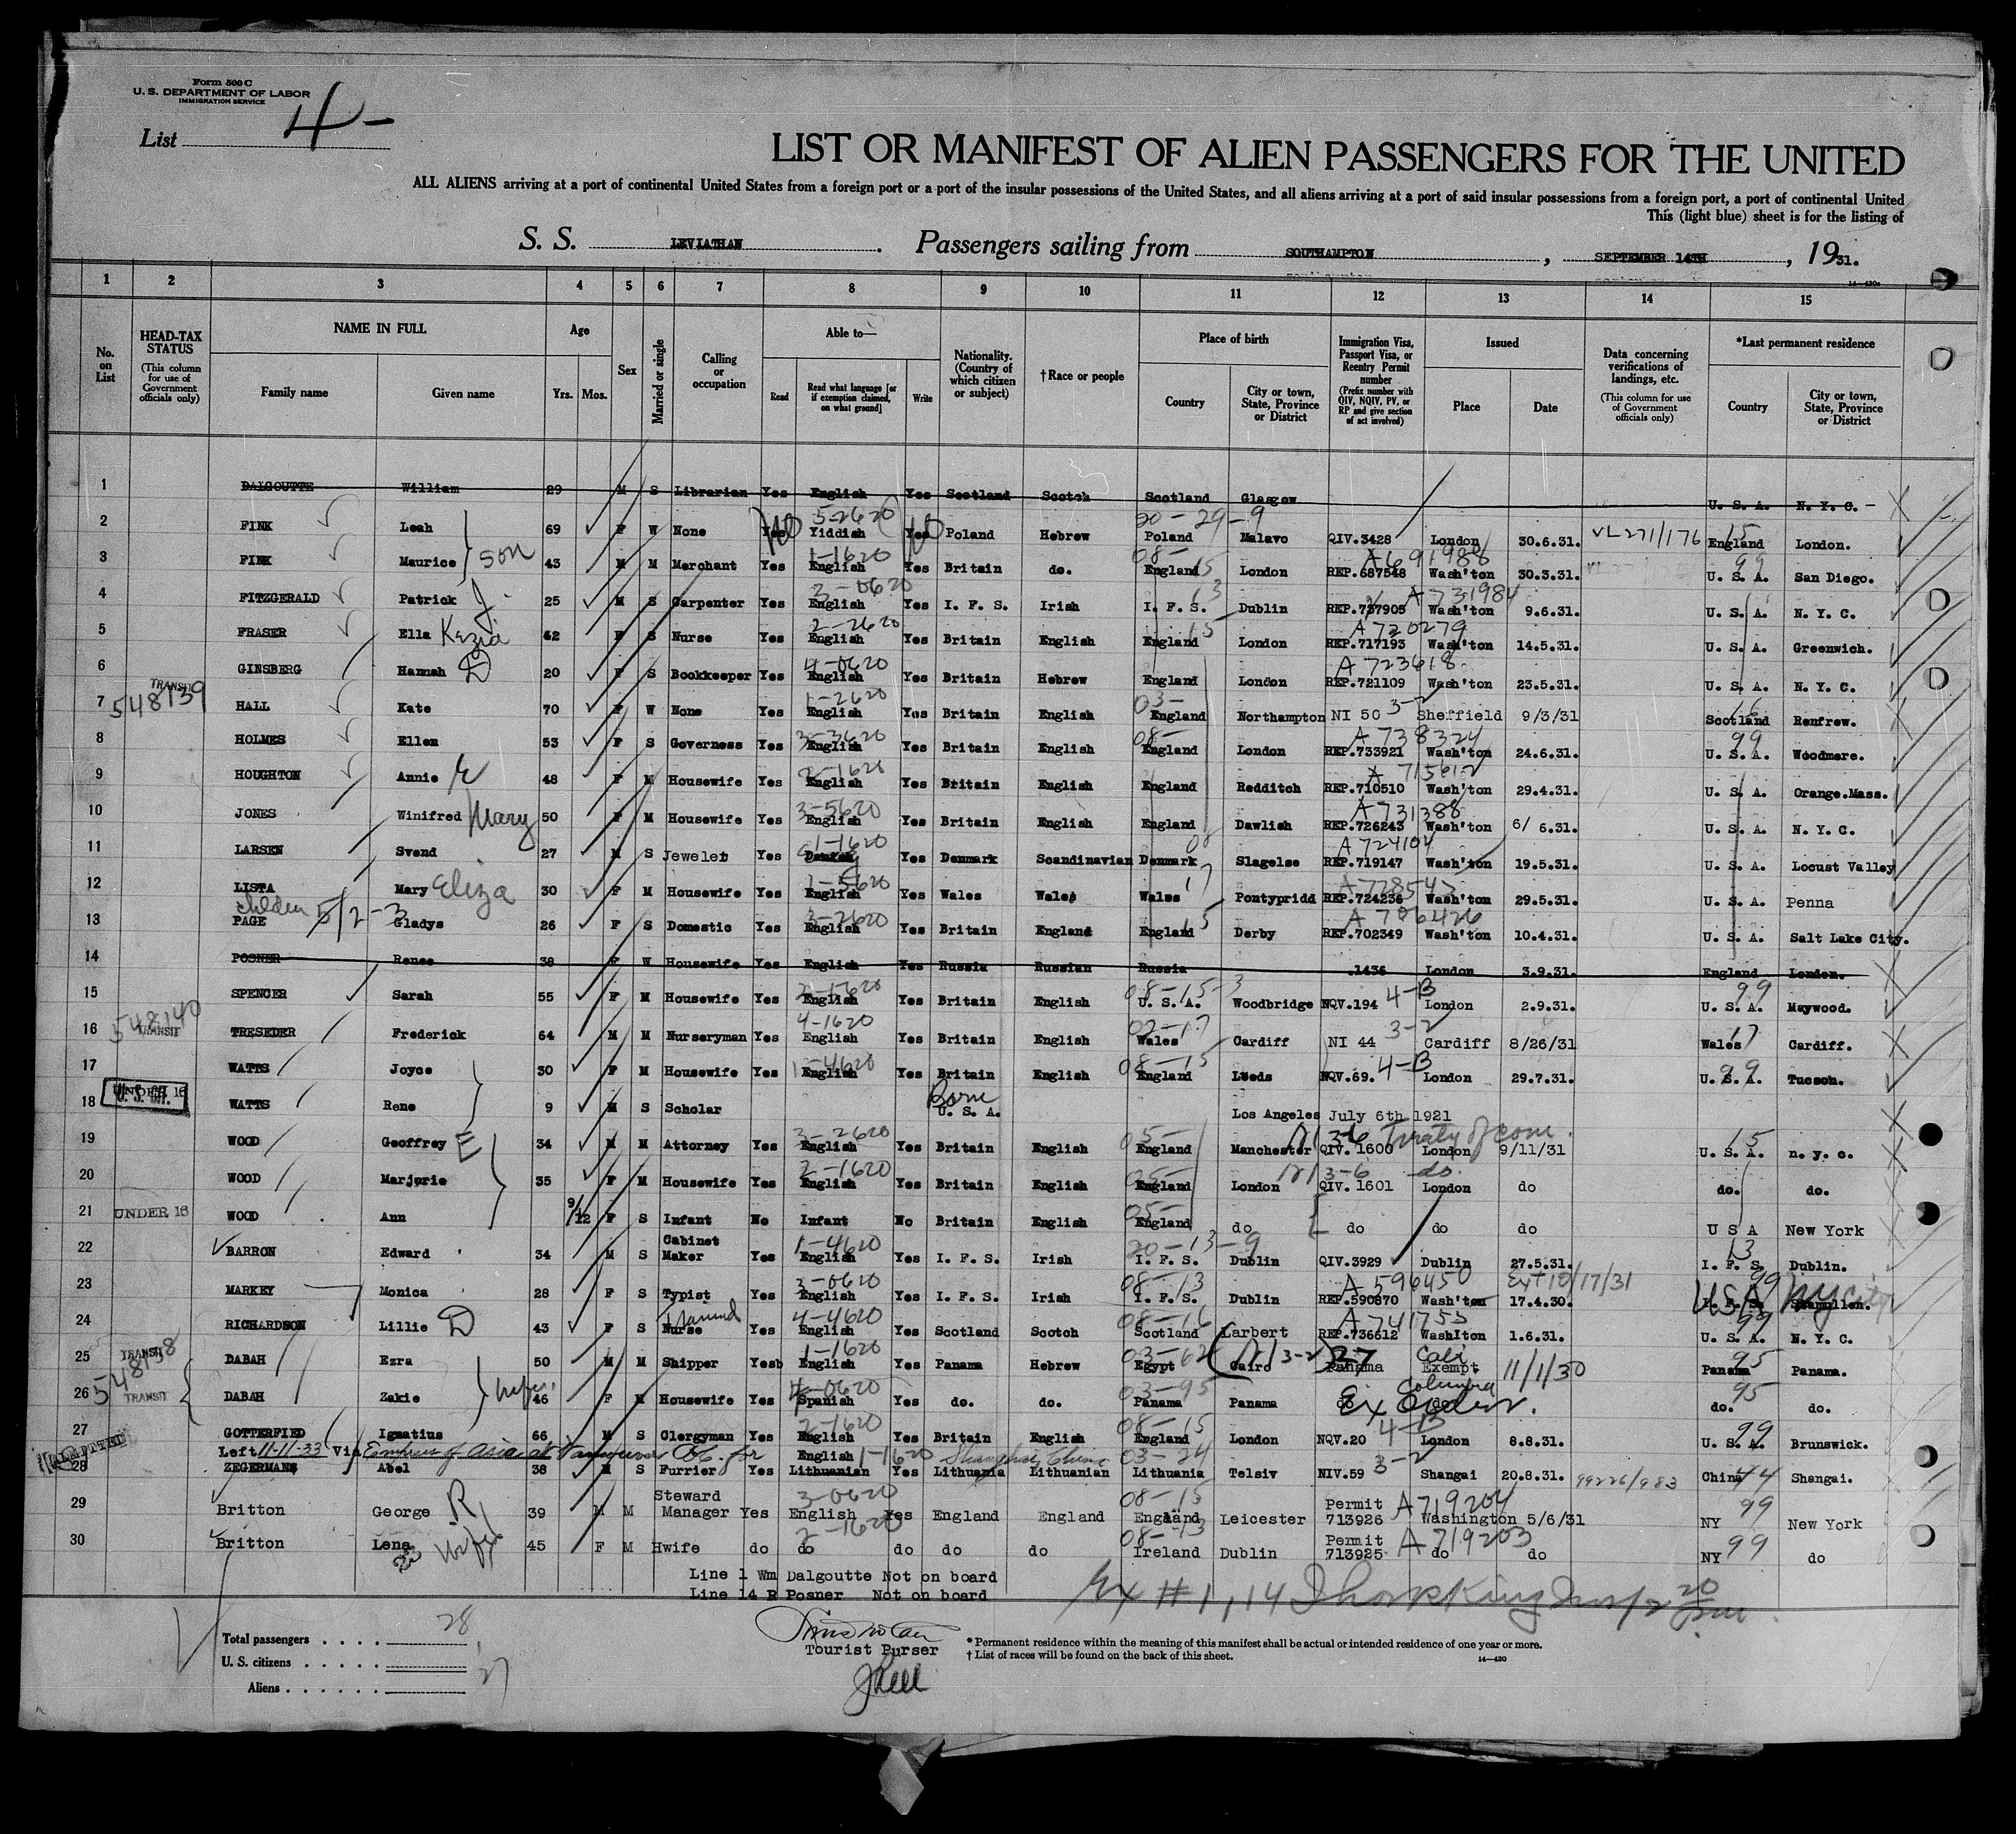 Form 500 C
U. S. DEPARTMENT OF LABOR
IMMIGRATION SERVICE
List 4-
LIST OR MANIFEST OF ALIEN PASSENGERS FOR THE UNITED
ALL ALIENS arriving at a port of continental United States from a foreign port or a port of the insular possessions of the United States, and all aliens arriving at a port of said insular possessions from a foreign port, a port of continental United
This (light blue) sheet is for the listing of
S. S. LEVIATHAN. Passengers sailing from SOUTHAMPTON, SEPTEMBER 14TH, 1931.
14—430a
1 2 3 4 5 6 7 8 9 10 11 12 13 14 15
No. on List
HEAD-TAX STATUS (This column for use of Government officials only)
NAME IN FULL Family name Given name
Age Yrs. Mos.
Sex
Married or single
Calling or occupation
Able to— Read Read what language [or if exemption claimed, on what ground] Write
Nationality. (Country of which citizen or subject)
†Race or people
Place of birth Country City or town, State, Province or District
Immigration Visa, Passport Visa, or Reentry Permit number (Prefix number with QIV, NQIV, PV, or RP and give section of act involved)
Issued Place Date
Data concerning verifications of landings, etc. (This column for use of Government officials only)
*Last permanent residence Country City or town, State, Province or District
1 DALGOUTTE William 29 M S Librarian Yes English Yes Scotland Scotch Scotland Glasgow U. S. A. N. Y. C.
5-2620 20-29-9
2 FINK Leah 69 F W None Yes No Yiddish Yes No Poland Hebrew Poland Malavo QIV.3428 London 30.6.31. VL 271/176 15 England London.
son 1-1620 08-15 A691988 99
3 FINK Maurice 43 M M Merchant Yes English Yes Britain do. England London REP.687548 Wash'ton 30.3.31. U. S. A. San Diego.
3-0620 13 A731984
4 FITZGERALD Patrick J. 25 M S Carpenter Yes English Yes I. F. S. Irish I. F. S. Dublin REP.737905 Wash'ton 9.6.31. U. S. A. N. Y. C.
2-2620 15 A720279
5 FRASER Ella Kezia 42 F S Nurse Yes English Yes Britain English England London REP.717193 Wash'ton 14.5.31. U. S. A. Greenwich.
4-0620 A723618
6 GINSBERG Hannah D 20 F S Bookkeeper Yes English Yes Britain Hebrew England London REP.721109 Wash'ton 23.5.31. U. S. A. N. Y. C.
TRANSIT 548139 1-2620 03- 3-2
7 HALL Kate 70 F W None Yes English Yes Britain English England Northampton NI 50 Sheffield 9/3/31 Scotland Renfrew.
3-3620 08- A738324 99
8 HOLMES Ellen 53 F S Governess Yes English Yes Britain English England London REP.733921 Wash'ton 24.6.31. U. S. A. Woodmere.
2-1620 A 715612
9 HOUGHTON Annie E 48 F M Housewife Yes English Yes Britain English England Redditch REP.710510 Wash'ton 29.4.31. U. S. A. Orange.Mass.
3-5620 A731388
10 JONES Winifred Mary 50 F M Housewife Yes English Yes Britain English England Dawlish REP.726243 Wash'ton 6/ 6.31. U. S. A. N. Y. C.
1-1620 A724104
11 LARSEN Svend 27 M S Jeweler Yes Danish Yes Denmark Scandinavian Denmark Slagelse REP.719147 Wash'ton 19.5.31. U. S. A. Locust Valley
1-5620 17 A728543
12 LISTA Mary Eliza 30 F M Housewife Yes English Yes Wales Wales Wales Pontypridd REP.724236 Wash'ton 29.5.31. U. S. A. Penna
5/2-3 3-2620 15 A706426
13 PAGE Gladys 26 F S Domestic Yes English Yes Britain England England Derby REP.702349 Wash'ton 10.4.31. U. S. A. Salt Lake City.
14 POSNER Renee 38 F W Housewife Yes English Yes Russia Russian Russia .1436 London 3.9.31. England London.
2-1620 08-15-3 4-B 99
15 SPENCER Sarah 55 F M Housewife Yes English Yes Britain English U. S. A. Woodbridge NQV.194 London 2.9.31. U. S. A. Maywood.
548140 TRANSIT 4-1620 02-17 3-2 17
16 TRESEDER Frederick 64 M M Nurseryman Yes English Yes Britain English Wales Cardiff NI 44 Cardiff 8/26/31 Wales Cardiff.
1-4620 08-15 4-B 99
17 WATTS Joyce 30 F M Housewife Yes English Yes Britain English England Leeds NQV.69. London 29.7.31. U. S. A. Tucson.
UNDER 16 Born
18 WATTS Rene 9 M S Scholar U. S. A. Los Angeles July 6th 1921
3-2620 05- 3-6 Treaty of com. 15
19 WOOD Geoffrey E 34 M M Attorney Yes English Yes Britain English England Manchester QIV. 1600 London 9/11/31 U. S. A. n. y. c.
2-1620 05- 3-6 do.
20 WOOD Marjorie 35 F M Housewife Yes English Yes Britain English England London QIV. 1601 London do do. do.
05-
21 UNDER 16 WOOD Ann 9/12 F S Infant No Infant No Britain English England do do do do U S A New York
1-4620 20-13-9 13
22 BARRON Edward 34 M S Cabinet Maker Yes English Yes I. F. S. Irish I. F. S. Dublin QIV.3929 Dublin 27.5.31. I. F. S. Dublin.
3-0620 08-13 A596450 Ext 10/17/31 99
23 MARKEY Monica 28 F S Typist Yes English Yes I. F. S. Irish I. F. S. Dublin REP.590870 Wash'ton 17.4.30. USA NY City
4-4620 08-16 A741753 99
24 RICHARDSON Lillie D 43 F S Nurse Yes English Yes Scotland Scotch Scotland Larbert REP.736612 WashIton 1.6.31. U. S. A. N. Y. C.
TRANSIT 548138 1-1620 03-62 3-2 Cali 95
25 DABAH Ezra 50 M M Shipper Yesb English Yes Panama Hebrew Egypt Cairo Panama Exempt 11/1/30 Panama Panama.
TRANSIT wife 4-0620 03-95 Columbia Ex Order. 95
26 DABAH Zakie 46 F M Housewife Yes Spanish Yes do. do. Panama Panama do do do. do.
2-1620 08-15 4-B 99
27 GOTTERFIED Ignatius 66 M S Clergyman Yes English Yes Britain English England London NQV.20 London 8.8.31. U. S. A. Brunswick.
Left 11-11-33 Via Empress of Asia at Vancouver B.C. for English 1-1620 Shanghai, China 03-24 3-2
28 ZEGERMANS Abel 38 M S Furrier Yes Lithuanian Yes Lithuania Lithuanian Lithuania Telsiv NIV.59 Shangai 20.8.31. 99226/983 China 44 Shangai.
3-0620 08-15 A719204 99
29 Britton George R 39 M M Steward Manager Yes English Yes England England England Leicester Permit 713926 Washington 5/6/31 NY New York
wife 2-1620 08-13 A719203 99
30 Britton Lena 45 F M Hwife do do do do do Ireland Dublin Permit 713925 do do NY do
Line 1 Wm Dalgoutte Not on board
Line 14 R Posner Not on board
Ex #1, 14
Total passengers . . . . 28
U. S. citizens . . . . .
Aliens . . . . . . 27
Tourist Purser
* Permanent residence within the meaning of this manifest shall be actual or intended residence of one year or more.
† List of races will be found on the back of this sheet.
14—430